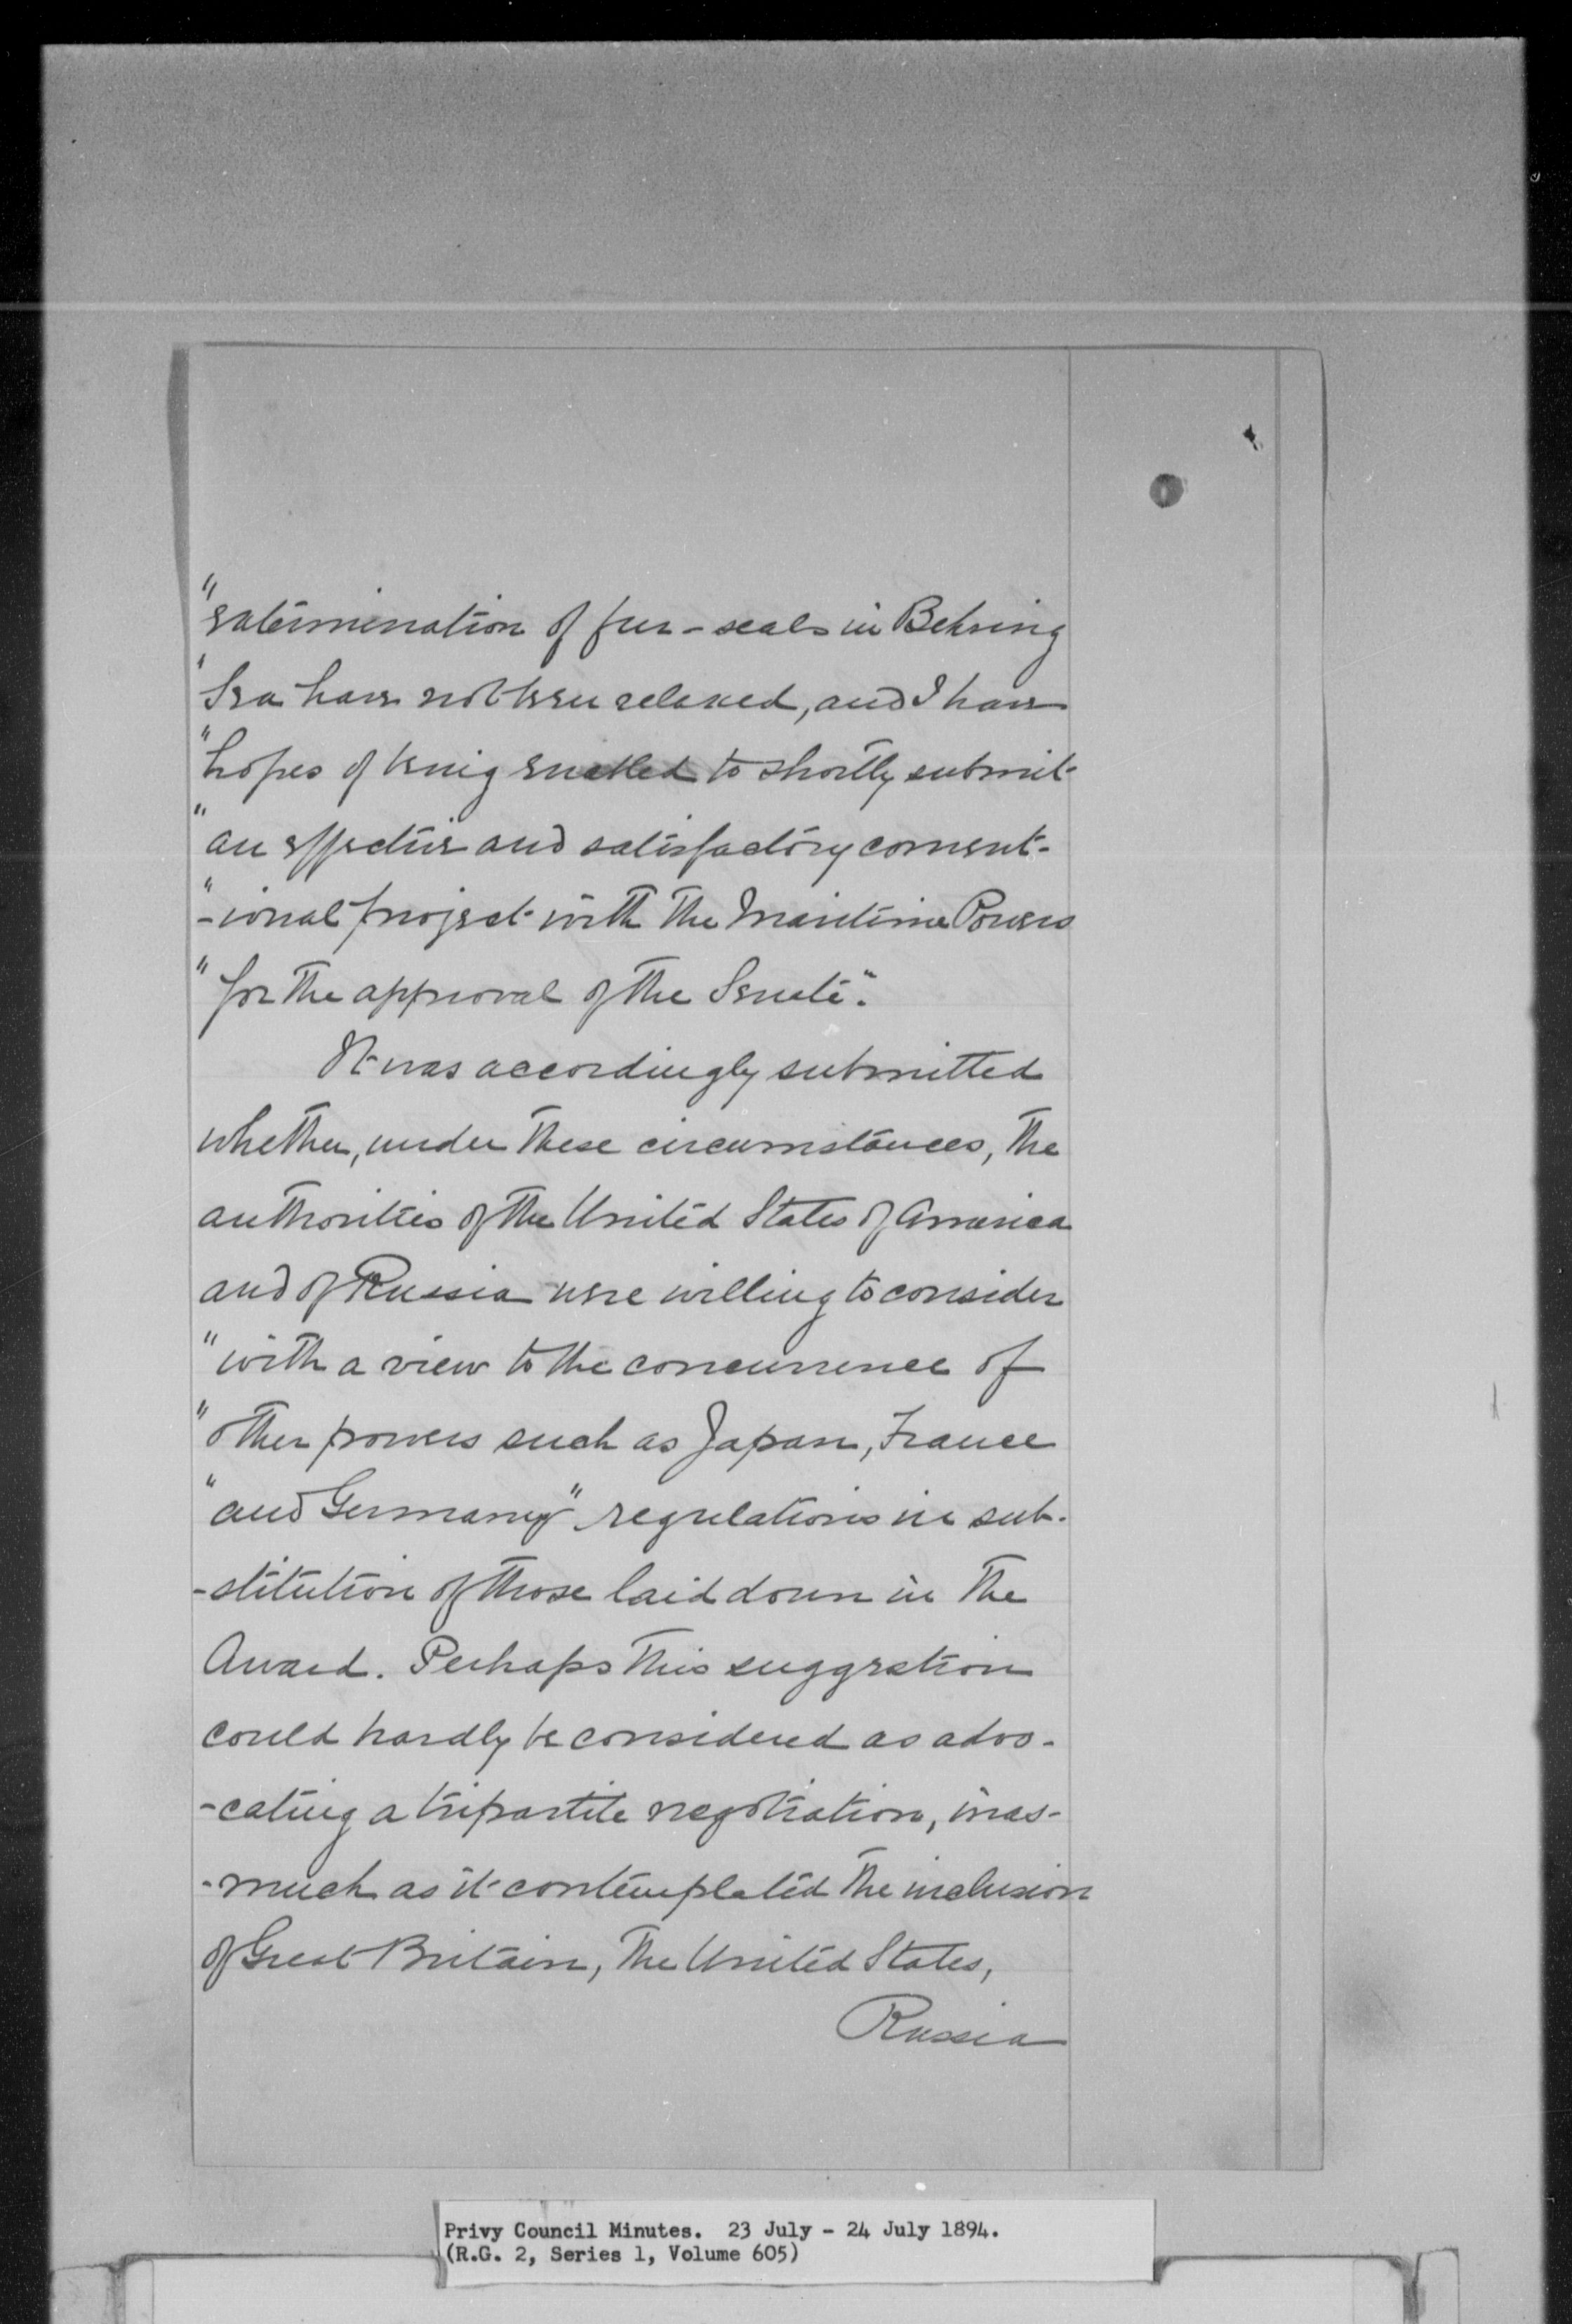 "extermination of fur-seals in Behring
"Sea have not been relaxed, and I have
"hopes of being enabled to shortly submit
"an effective and satisfactory convent-
"-ional project with the Maritime Powers
"for the approval of the Senate".
It was accordingly submitted
whether, under these circumstances, the
authorities of the United States of America
and of Russia were willing to consider
"with a view to the concurrence of
"other powers such as Japan, France
"and Germany" regulations in sub-
-stitution of those laid down in the
Award. Perhaps this suggestion
could hardly be considered as advo-
-cating a tripartite negotiation, inas-
-much as it contemplated the inclusion
of Great Britain, the United States,
Russia
Privy Council Minutes. 23 July - 24 July 1894.
(R.G. 2, Series 1, Volume 605)